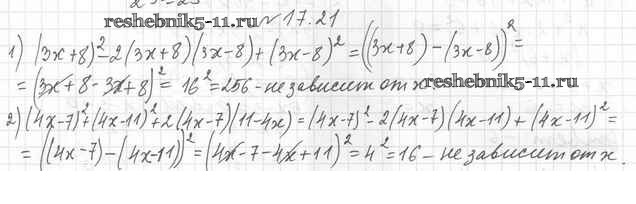 25-25
reshebnik5-11.ru № 17.21
1) (3x+8)²-2(3x+8)(3x-8)+(3x-8)²=((3x+8)-(3x-8))²=
=(3x+8-3x+8)²= 16²=256-не зависит от х reshebnik5-11.ru
2) (4x-7)²+(4x-11)²+2(4x-7)(11-4x)=(4x-7)²-2(4x-7)(4x-11)+(4x-11)²=
=((4x-7)-(4x-11))²=(4x-7-4x+11)²=4²=16-не зависит от х.